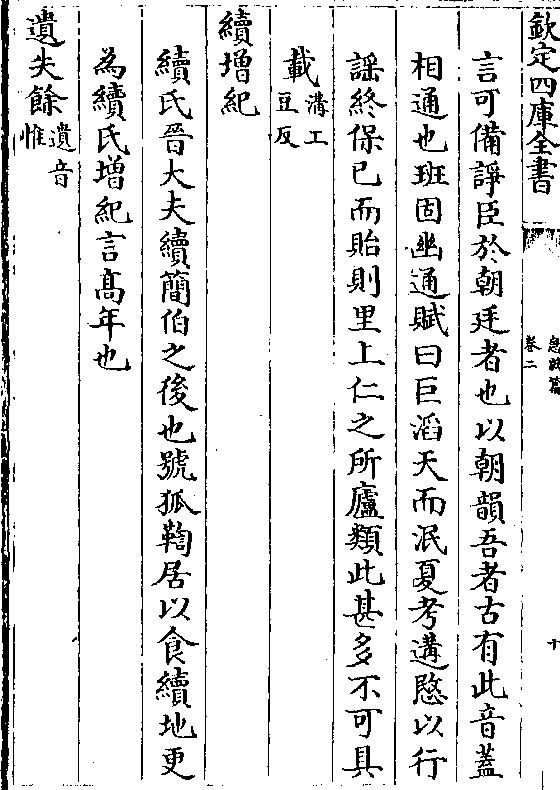 欽定四庫全書
急就篇
卷二
十
言可備諍臣於朝廷者也以朝韻吾者古有此音蓋
相通也班固幽通賦曰巨滔天而泯夏考遘愍以行
謡終保已而貽則里上仁之所廬類此甚多不可具
載溝工豆反
續增紀
續氏晉大夫續簡伯之後也號狐鞫居以食續地更
為續氏增紀言髙年也
遺失餘遺音惟